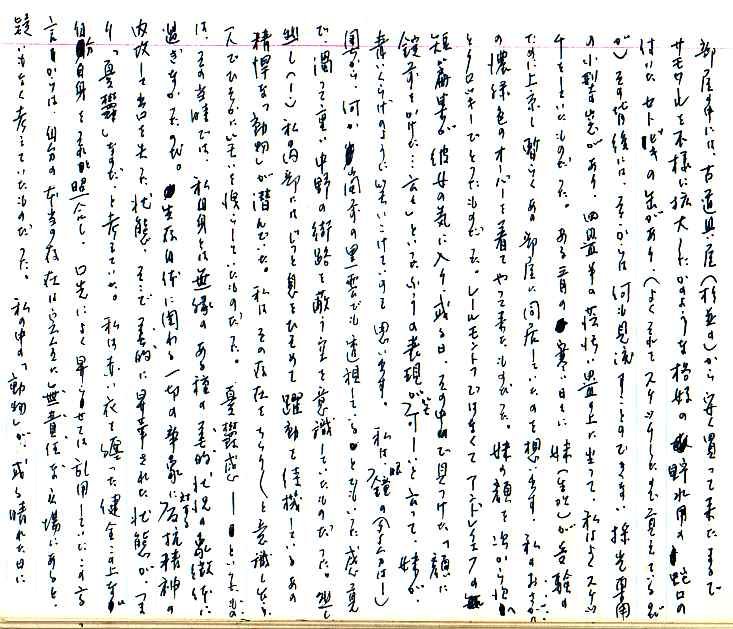 部屋の中には、古道具屋（杉並の）から安く買って来たまるで
サモワールを不様に拡大したかのような格好の貯水用の蛇口の
はいたセトビキの缶があり、（よくそれでスケッチしたのを覚えているが
が）その背後には、そこからは何も見渡すことのできない採光専用
の小型の窓があり、四畳半の畳の上に坐って、私はよくスケッ
チをしていたものだった。ある三月の寒い日に妹が受験の
ために上京し暫くあの部屋に同居していたのを想い出す。私のおさがり
の濃緑色のオーバーを着てやって来たものだった。妹の顔を次から次へ
とクロッキーでとったものだった。レールモントフではなくてアンドレイエフの
短篇集が彼女の気に入り或る日その中で見つけた「顔に
錠前をかけた…云々」といったふうの表現がすごいと言って、妹が
青いくらげのように笑いこけていたのを思い出す。私は
何か黒雲でも透視しているかともいった感覚
で、濁って重い中野の街路を敵う空を意識していたものだった。
私の内部にはじっと息をひそめて躍動を待機しているあの
精悍な「動物」が潜んでいた。私はその存在をちらりと意識しながら
一人でひそかに笑いを洩らしていたものだった。憂鬱感――といったもの
は、その当時では、私自身とは無縁のある種の美的状況の象徴体に
過ぎなかったのだ。生存自体に関わる一切の事象に対する反抗精神の
内攻して出口を失った状態、そこで美的に昇華された状態が、つま
り「憂鬱」なのだ、と考えていた。私は赤い衣を纏った健全この上ない
自分自身を照合し、口先によく昇らせては乱用していたこの言
言からは、自分の本当の存在は完全に無責任な立場にあると、
疑いもなく考えていたものだった。私の中の「動物」が、或る晴れた日に